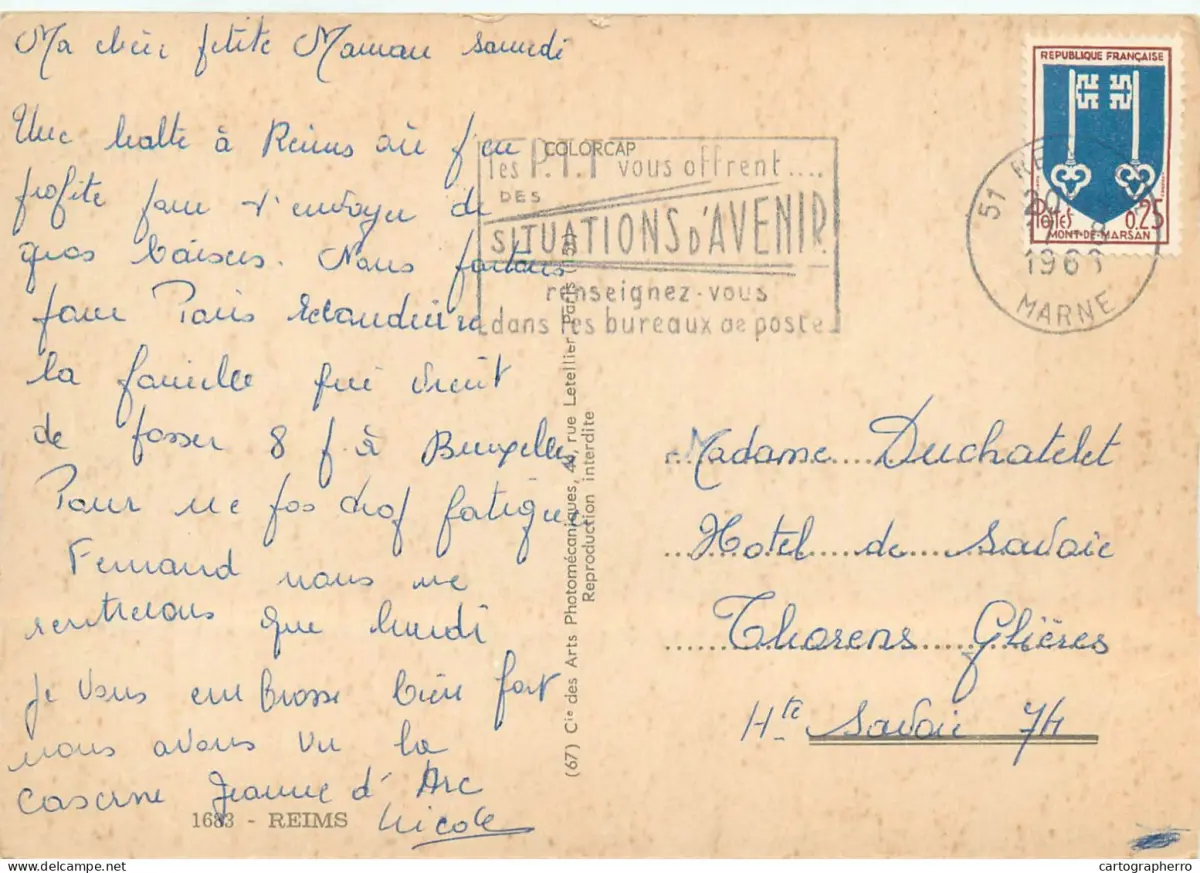 Ma chère petite Maman samedi
Une halte à Reims où j'en
profite pour t'envoyer de
gros baisers. Nous partons
pour Paris
la famille qui vient
de passer 8 j. à Bruxelles
Pour ne pas trop fatiguer
Fernand nous ne
rentrerons que lundi
je vous embrasse bien fort
nous avons vu la
caserne Jeanne d'Arc
Nicole
1683 - REIMS
COLORCAP
les P.T.T vous offrent ....
DES
SITUATIONS D'AVENIR
renseignez-vous
dans les bureaux de poste
(67) Cie des Arts Photomécaniques, rue Letellier Paris
Reproduction interdite
REPUBLIQUE FRANÇAISE
Postes 0.25
MONT-DE-MARSAN
51
1968
MARNE
Madame Duchatelet
Hotel de Savoie
Thorens Glières
Hte Savoie 74
cartographerro